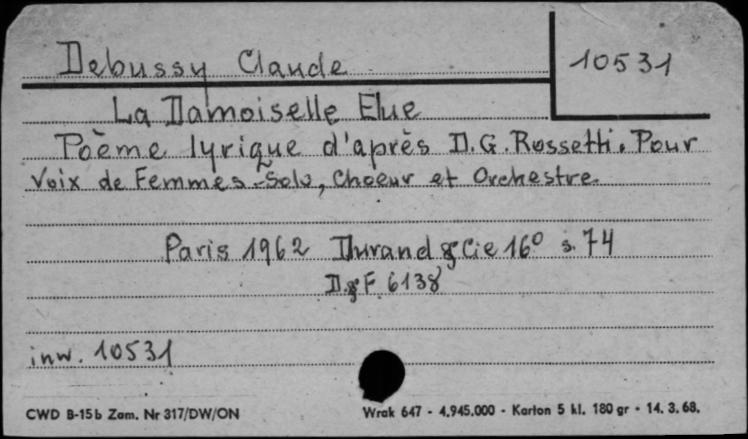 Debussy Claude 10531
La Damoiselle Elue
Poème lyrique d'après D.G. Rossetti. Pour
Voix de Femmes-Solo, Choeur et Orchestre.
Paris 1962 Durand & Cie 16° s. 74
D. & F. 6138
inw. 10531
CWD B-15b Zam. Nr 317/DW/ON Wrak 647 - 4.945.000 - Karton 5 kl. 180 gr - 14. 3. 68.